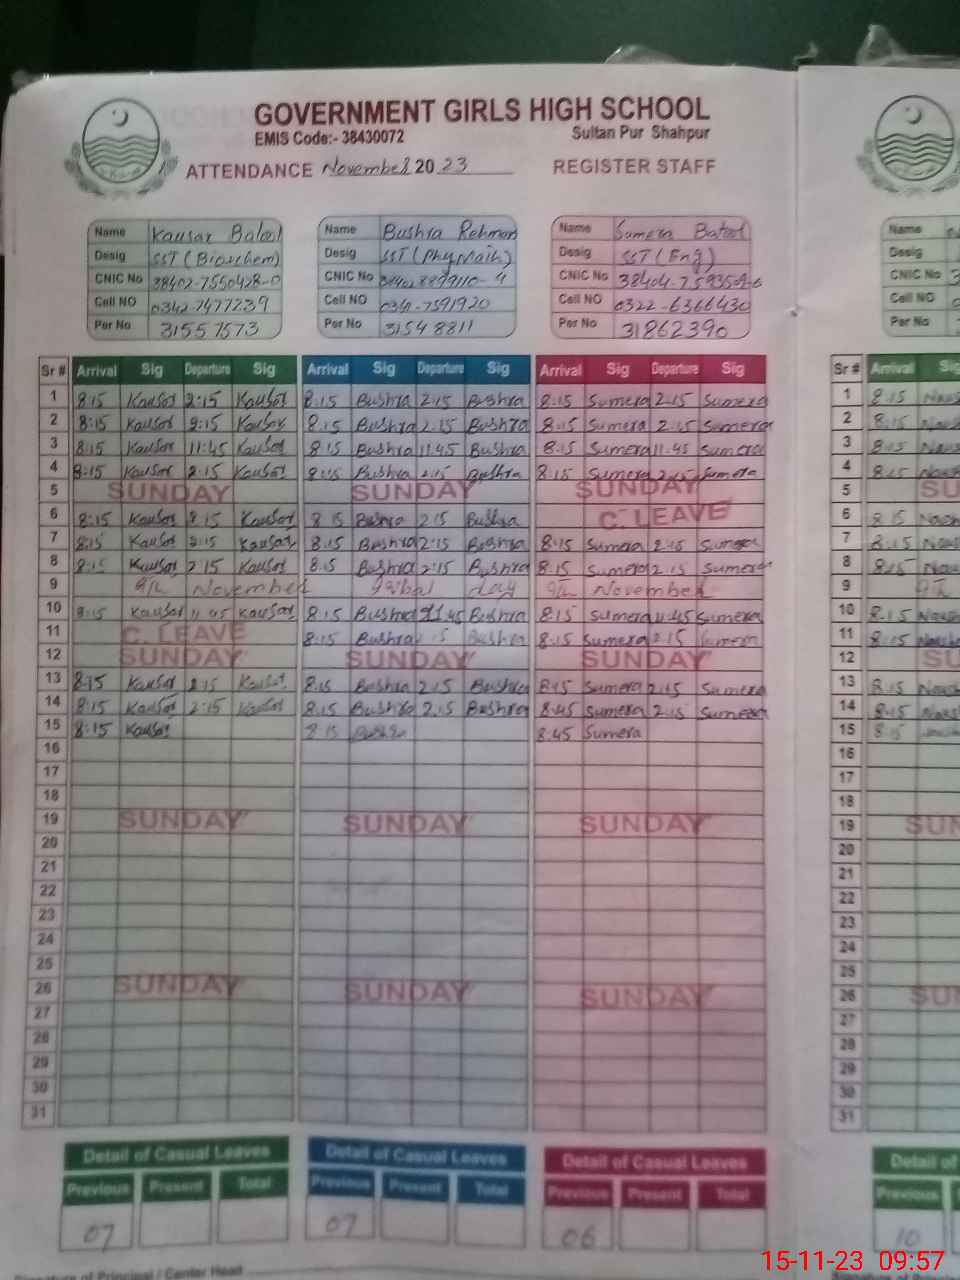 GOVERNMENT GIRLS HIGH SCHOOL
EMIS Code:- 38430072 Sultan Pur Shahpur
ATTENDANCE November 2023 REGISTER STAFF
Name Kausar Batool Name Bushra Rehman Name Sumera Batool Name
Desig SST (Bio:chem) Desig SST (Phy Math) Desig SST (Eng) Desig
CNIC No 38402-7550428-0 CNIC No CNIC No CNIC No
Cell NO 0342-7477239 Cell NO Cell NO 0322-6366430 Cell NO
Per No 31557573 Per No 31548811 Per No 31862390 Per No
Sr # Arrival Sig Departure Sig Arrival Sig Departure Sig Arrival Sig Departure Sig Sr # Arrival Sig
1 8:15 Kausar 2:15 Kausar 8:15 Bushra 2:15 Bushra 8:15 Sumera 2:15 Sumera 1 8:15
2 8:15 Kausar 2:15 Kausar 8:15 Bushra 2:15 Bushra 8:15 Sumera 2:15 Sumera 2 8:15
3 8:15 Kausar 11:45 Kausar 8:15 Bushra 11:45 Bushra 8:15 Sumera 11:45 Sumera 3 8:15
4 8:15 Kausar 2:15 Kausar 8:15 Bushra 2:15 Bushra 8:15 Sumera 2:15 Sumera 4 8:15
5 SUNDAY SUNDAY SUNDAY 5 SU
6 8:15 Kausar 2:15 Kausar 8:15 Bushra 2:15 Bushra C. LEAVE 6 8:15
7 8:15 Kausar 2:15 Kausar 8:15 Bushra 2:15 Bushra 8:15 Sumera 2:15 Sumera 7 8:15
8 8:15 Kausar 2:15 Kausar 8:15 Bushra 2:15 Bushra 8:15 Sumera 2:15 Sumera 8 8:15
9 9th November Iqbal day 9th November 9 9th
10 8:15 Kausar 11:45 Kausar 8:15 Bushra 11:45 Bushra 8:15 Sumera 11:45 Sumera 10 8:15
11 C. LEAVE 8:15 Bushra 2:15 Bushra 8:15 Sumera 2:15 Sumera 11 8:15
12 SUNDAY SUNDAY SUNDAY 12 SU
13 8:15 Kausar 2:15 Kausar 8:15 Bushra 2:15 Bushra 8:15 Sumera 2:15 Sumera 13 8:15
14 8:15 Kausar 2:15 Kausar 8:15 Bushra 2:15 Bushra 8:45 Sumera 2:15 Sumera 14 8:15
15 8:15 Kausar 8:15 Bushra 8:45 Sumera 15 8:15
16 16
17 17
18 18
19 SUNDAY SUNDAY SUNDAY 19 SUN
20 20
21 21
22 22
23 23
24 24
25 25
26 SUNDAY SUNDAY SUNDAY 26 SUN
27 27
28 28
29 29
30 30
31 31
Detail of Casual Leaves Detail of Casual Leaves Detail of Casual Leaves Detail of
Previous Present Total Previous Present Total Previous Present Total Previous
07 07 06 10
Signature of Principal / Center Head
15-11-23 09:57